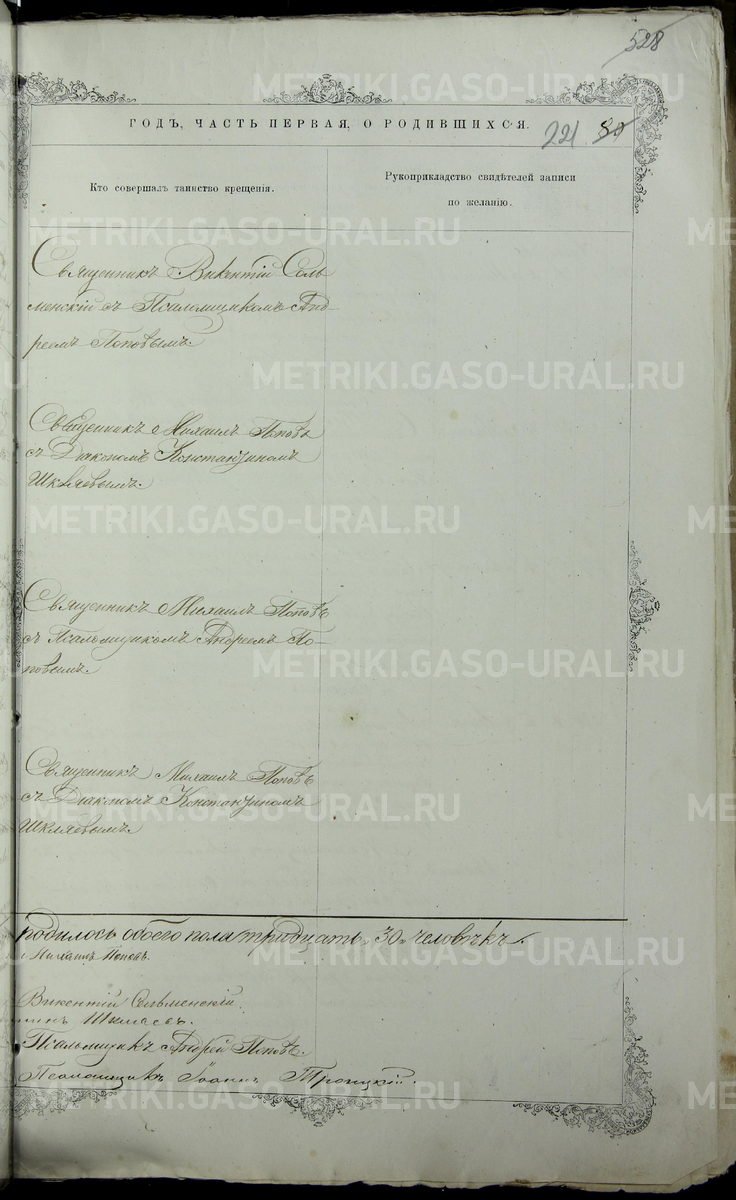 528
ГОДЪ, ЧАСТЬ ПЕРВАЯ, О РОДИВШИХСЯ.
221 80
Кто совершалъ таинство крещенія.
Рукоприкладство свидѣтелей записи
по желанію.
Священникъ Викентій Сель
менскій съ Псаломщикомъ Анд
реемъ Поповымъ.
Священникъ Михаилъ Поповъ
съ Діакономъ Константиномъ
Шкляевымъ.
Священникъ Михаилъ Поповъ
съ Псаломщикомъ Андреемъ По-
повымъ.
Священникъ Михаилъ Поповъ
съ Діакономъ Константиномъ
Шкляевымъ.
родилось обоего пола тридцать "30" человѣкъ.
Михаилъ Поповъ.
Викентій Сельменскій
Шкляевъ.
Псаломщикъ Андрей Поповъ.
Псаломщикъ Іоаннъ Троицкій.
METRIKI.GASO-URAL.RU